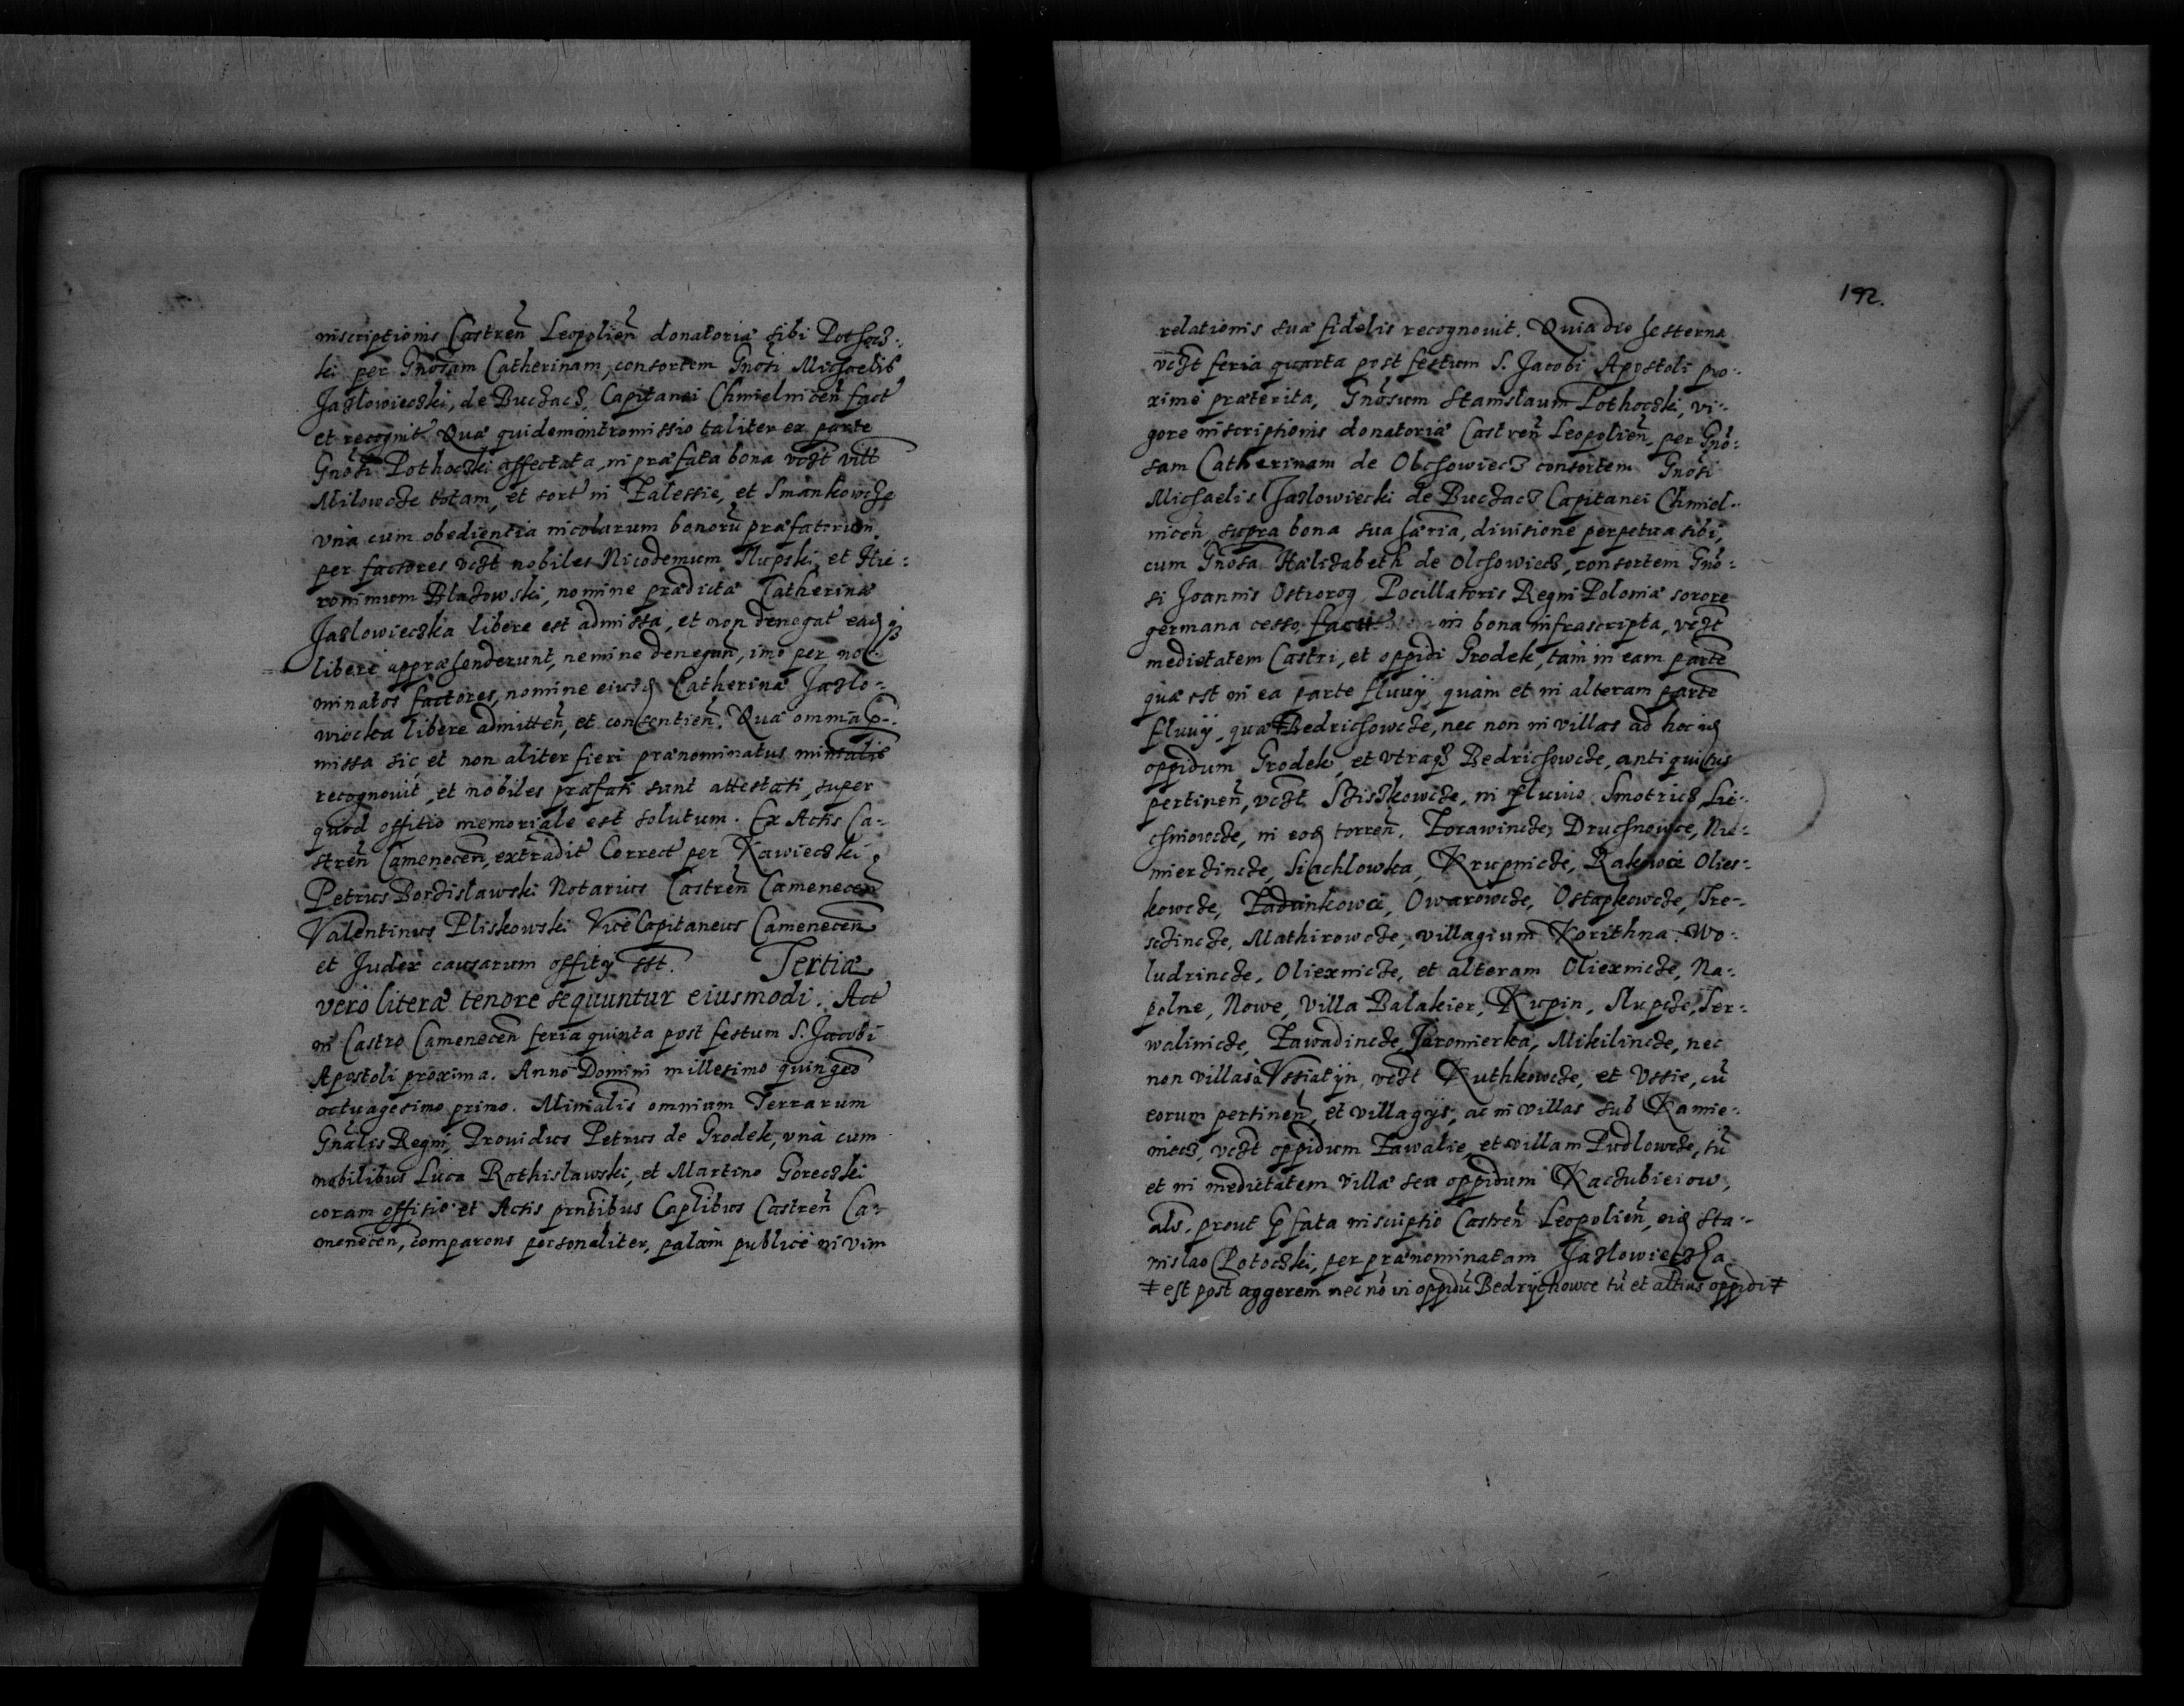 inscriptionis Castren̄ Leopolien̄ donatoriæ sibi Pothocz-
ki per Gn̄osam Catherinam, consortem Gn̄osi Michaelis
Jazlowieczki, de Buczacz, Capitanei Chmielnicen̄ fact
et recognit. Quæ quidem intromissio taliter ex parte
Gn̄osi Pothoczki affectata, in præfata bona vczt vill
Milowcze totam, et sort in Zalessie, et Smankowcze
vnà cum obedientia incolarum bonorū præfatorum.
per factores vczt nobiles Nicodemum Slupski, et Hie-
ronimum Blazowski, nomine prædictæ Catherinæ
Jazlowieczka libere est admissa, et non denegat eaq̃ʒ
liberè appræhenderunt, nemine denegan̄, imo per no-
minatos factores, nomine eiusd̨ Catherinæ Jazlo-
wiecka libere admitten̄, et consentien̄. Quæ omnia p-
missa sic et non aliter fieri prænominatus ministalis
recognouit, et nobiles præfati sunt attestati, super
quod offitio memoriale est solutum. Ex Actis Ca-
stren̄ Camenecen̄, extradit Correct per Kawieczki,
Petrus Bordislawski Notarius Castren̄ Camenecen̄
Valentinus Pliskowski ViceCapitaneus Camenecen̄
et Judex causarum offitij sst. Tertiæ
vero literæ tenore sequuntur eiusmodi. Act
in Castro Camenecen̄ feria quinta post festum S. Jacobi
Apostoli proxima. Anno Domini millesimo quingeō
octuagesimo primo. Minialis omnium Terrarum
Gn̄alis Regni, Prouidus Petrus de Grodek, vnà cum
nobilibus Luca Rothislawski, et Martino Goreczki
coram offitio et Actis pn̄tibus Caplibus Castren̄ Ca-
menecen̄, comparens personaliter, palàm publicè in vim
192.
relationis suæ fidelis recognouit. Quia die hesterna
vczt feria quarta post festum S. Jacobi Apostoli pro-
ximè præterita, Gn̄osum Stanislaum Pothoczki, vi-
gore inscriptionis donatoriæ Castren̄ Leopolien̄, per Gn̄o-
sam Catherinam de Olchowiecz consortem Gn̄osi
Michaelis Jazlowiecki de Buczacz Capitanei Chmiel-
nicen̄, supra bona sua hæria, diuisione perpetua sibi,
cum Gn̄osa Halizabeth de Olchowiecz, consortem Gn̄o-
si Joannis Ostrorog Pocillatoris Regni Poloniæ sorore
germana cesso, fact in bona infrascripta, vczt
medietatem Castri, et oppidi Grodek, tam in eam partē
quæ est in ea parte fluuij, quàm et in alteram partē
fluuij, quæ ‡Bedrichowcze, nec non in villas ad hoc id̨
oppidum Grodek, et vtraq̃ʒ Bedrichowcze, antiquitus
pertinen̄, vczt Sziszkowcze, in fluuio Smotricz, Li-
chniowcze, in eod̨ torren̄. Zorawincze, Druchnowce, Nie-
mierzincze, Slachlowka, Krupnicze, Rakowce Olies-
kowcze, Zadunkowce, Owarowcze, Ostapkowcze, Tre-
sczincze, Mathirowcze, villagium Korithna. Wo-
ludrincze, Oliexnicze, et alteram Oliexnicze, Na-
polne, Nowe, villa Balakier, Kupin, Slupcze, Ter-
walinicze, Zawadincze, Jaromierka, Mikilincze, nec
non villas à Vssiatijn, vczt Kuthkowcze, et Vssie, cū
eorum pertinen̄, et villagijs, ac in villas sub Kamie-
niecz, vczt oppidum Zawalie, et villam Pudlowcze, tū
et in medietatem villæ seu oppidum Kaczubieiow,
als. prout p̄fata inscriptio Castren̄ Leopolien̄, eid̨ Sta-
nislao Potoczki, per prænominatam Jazlowieczka
‡ est post aggerem nec nō in oppidū Bedrychowce tū et alti⁹ oppidi ‡